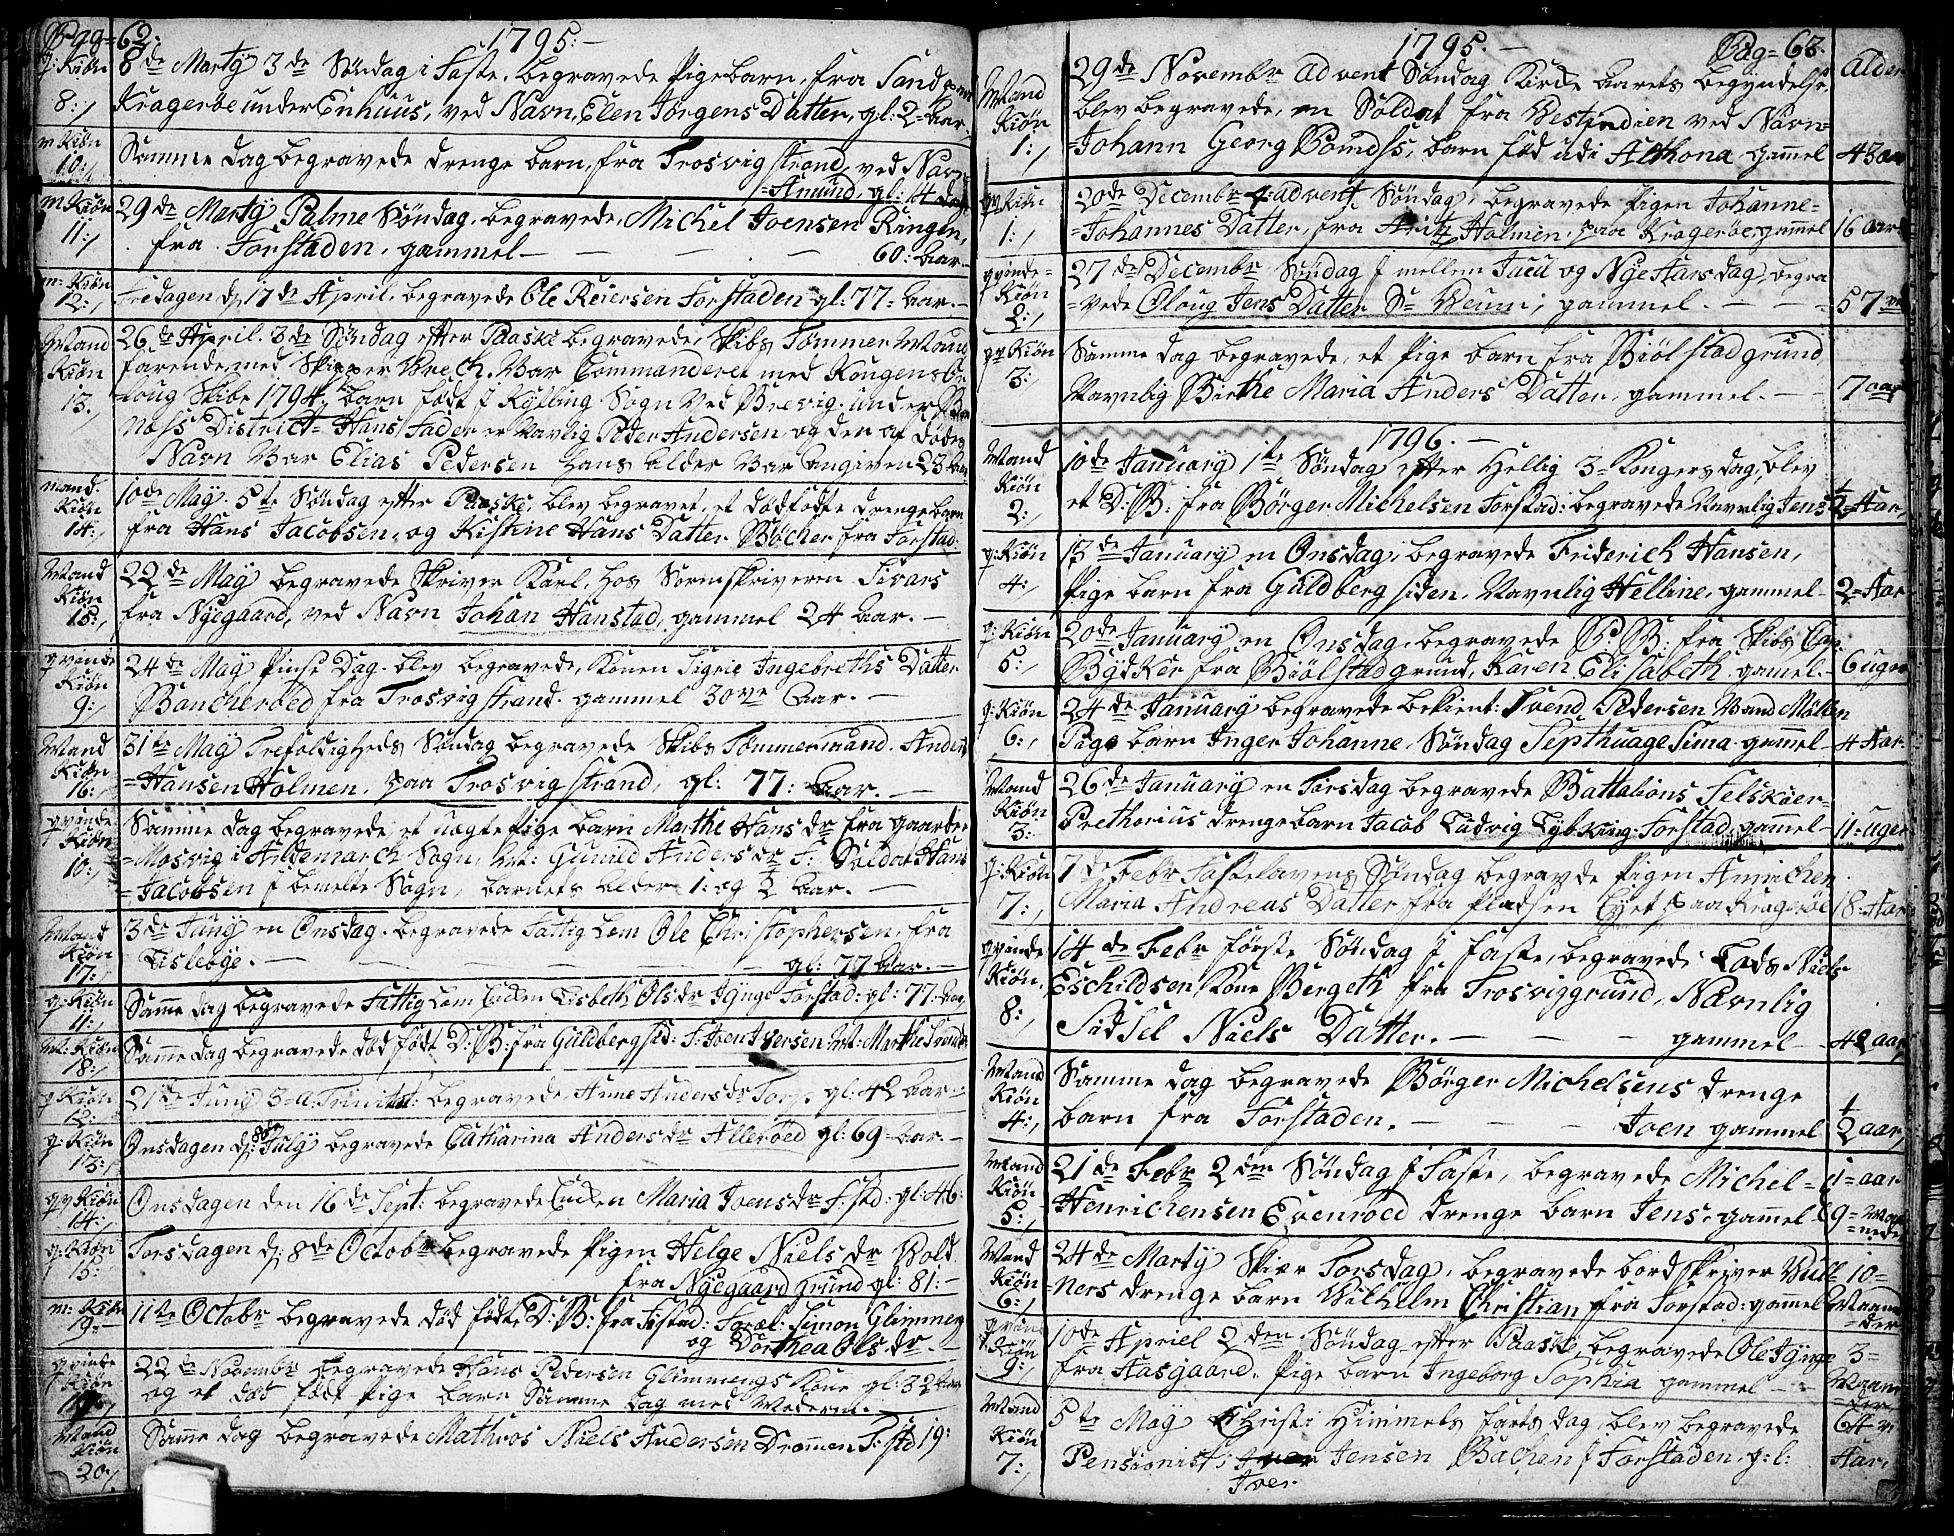 Pag=62:
1795:
q: Kiøn 8:,
8de Martÿ 3de Søndag i Faste, begravede Pigebarn, fra Sand
Kragerøe under Enhuus, ved Navn, Elen Jørgens Datter, gl: 2= Aar
m Kiøn 10:,
Samme dag begravede drenge barn, fra Trosvig strand, ved Navn
=Amund, gl: 14 dage
m Kiøn 11:,
29de Martÿ Palme Søndag, begravede, Michel Joensen Ringen,
fra Forstaden, gammel - - - 60: Aar
m: Kiøn 12:,
Fredagen d: 17de April begravede Ole Reiersen Forstaden gl: 77= Aar.
Mand Kiøn 13.,
26de April. 3de Søndag efter Paaske begravede, Skibs Tømmer Mand
farende med Skipper Brech. Var Commanderet med Kongens
Skibe 1794, barn født i Kÿlling Sogn Ved Brevig. under
Næss District= Hans Fader er Navnlig Peder Andersen og den af Dødes
Navn Var Elias Pedersen hans alder Var angiven 23 Aar
mand. Kiøn 14:,
10de Maÿ. 5te Søndag efter Paaske, blev begravet, et dødfødte drengebarn
fra Hans Jacobsen, og Kistine Hans Datter Bøcher fra Forstad:
Mand Kiøn 15:,
22de Maÿ begravede Skriver Karl. hos Sorenskriveren Sivars
fra Nÿegaard, ved Navn Johan Hanstad, gammel 24 Aar.
qvinde Kiøn 9:,
24de Maÿ Pinse Dag. blev begravede, Konen Sigrie Ingebreths Datter
Bancherøed fra Trosvig strand. gammel 30 Aar.
Mand Kiøn 16:,
31te Maÿ Trefoldigheds Søndag begravede Skibs Tømmermand. Anders
=Hansen Holmen. paa Trosvig strand, gl: 77: Aar.
qvinde Kiøn 10:,
Samme dag begravede, et uægte Pige barn Marthe Hans dr fra gaarden
=Mosvig i Aremarch Sogn, M: Gunild Anders dr F: Soldat Hans
=Jacobsen i bemelte Sogn, barnets alder 1: og ½ Aar.
Mand Kiøn 17:,
3de Junÿ en Onsdag. begravede Fattig Lem Ole Christophersen, fra
Lisleøÿe. - - - gl: 77 Aar.
q: Kiøn 11:,
Samme dag begravede Fattig Lem Encken Lisbeth Ols dr Forstad: gl: 77: Aar
M: Kiøn 18:,
Samme dag begravede død født D: B: fra Guldberg sid: F: Joen Iversen M: Marthe
q Kiøn 12:,
21de Junÿ 3 a Trinitat: begravede, Anne Anders dr Torp. gl: 42 Aar.
q: Kiøn 13:,
Onsdagen d: 8de Julÿ begravede Catharina Anders dr Allerøed gl: 69 Aar.
qv Kiøn 14:,
Onsdagen den 16de Sept: begravede Encken Maria Joens dr F: stad: gl: 46:
q: Kiøn 15:
Torsdagen d: 8de Octobr begravede Pigen Helge Niels dr Vold
fra Nÿegaard grund gl: 81:
m: Kiøn 19:
11te Octobr begravede død født, D: B: fra F: stad: Foræl: Simon Glimmen
og Dorthea Ols dr.
qvinde Kiøn
22de Novembr begravede Hans Pedersen Glimmengs Kone gl: 32 Aar
og et død født Pige barn Samme Dag med Moderen.
Mand Kiøn 20:,
Samme dag begravede Mathias Niels Andersen Drammen F: std 19:
1795.
Pag= 63.
Alder
Mand Kiøn 1:,
29de Novembr Advent Søndag Kirke Aarets begÿndelse
blev begravede, en Soldat fra Vestindien ved Navn=
=Johann Georg, barn fød udi Althona gammel 43 aar
qv Kiøn 1:,
20de Decembr 4: advent Søndag, begravede Pigen Johanne=
=Johannes Datter, fra Holmen, paa Kragerøe, gammel 16 aar
qvinde= Kiøn 2:,
27de Decembr Søndag i mellem Juul og Nÿe Aars dag, begra
=vede Oloug Jens Datter Sr Veum, gammel. - - 57
qv Kiøn 3:
Samme dag begravede, et Pige barn fra Biølstad grund
Navnlig Birthe Maria Anders Datter, gammel. - 7 aar
1796.
Mand Kiøn 2:,
10de Januarÿ 1te Søndag efter Hellig 3= Kongers dag, blev
et D: B: fra Børger Michelsen Forstad: begravede Navnlig Jens ½= Aar,
q: Kiøn 4:,
13de Januarÿ en Onsdag, begravede Friderich Hansen,
Pige barn fra Guldberg siden. Navnlig Helline, gammel 2= Aar
q: Kiøn 5:,
20de Januarÿ en Onsdag, begravede P: B. fra Skibs Cap.
Bÿdker fra Biølstad grund, Karen Elisabeth gamel. 6 uger
q: Kiøn 6:,
24de Januarÿ begravede bekient: Svend Pedersen Vand Møllen
Pige barn Inger Johanne, Søndag Septhuagesima gammel 4 Aar
Mand Kiøn 3:
26de Januarÿ en Torsdag begravede Battalions Felskier=
Prethorius drengebarn Jacob Ludvig Forstad, gammel 11= Uger
q: Kiøn 7:,
7de Febr Fastelavens Søndag begravede Pigen Annichen
Maria Andreas Datter fra Pladsen Eget paa Kragerøe 18= Aar
qvinde Kiøn. 8:,
14de Febr første Søndag i faste, begravede Lods Niels
Eschildsen, Kone Bergeth fra Trosviggrund, Nævnlig
Sidsel Niels Datter. - - gammel 42 aar
Mand Kiøn 4:,
Samme dag begravede Børger Michelsens drenge
barn fra Forstaden. - - Joen gammel ½ aar
Mand Kiøn 5:,
21de Febr 2den Søndag i Faste, begravede Michel= 1= aar
Henrichensen Evenrøed drenge barn Jens, gammel 9= Maaneder
Mand Kiøn 6:,
24de Martÿ Skier Torsdag, begravede bordskriver Vull= 10=
ners drenge barn Wilhelm Christian fra Forstad: gammel Maaneder
qvinde Kiøn 9:,
10de Apriel 2den Søndag efter Paaske, begravede Ole 3=
fra Aasgaard. Pige barn Ingeborg Sophia gammel - - Maaneder
Mand Kiøn 7:,
5te Maÿ Christi Himmels farts dag, blev begravede 64
Pensionist Jensen Bachen i Forstaden, g: l: Aar,
Iver